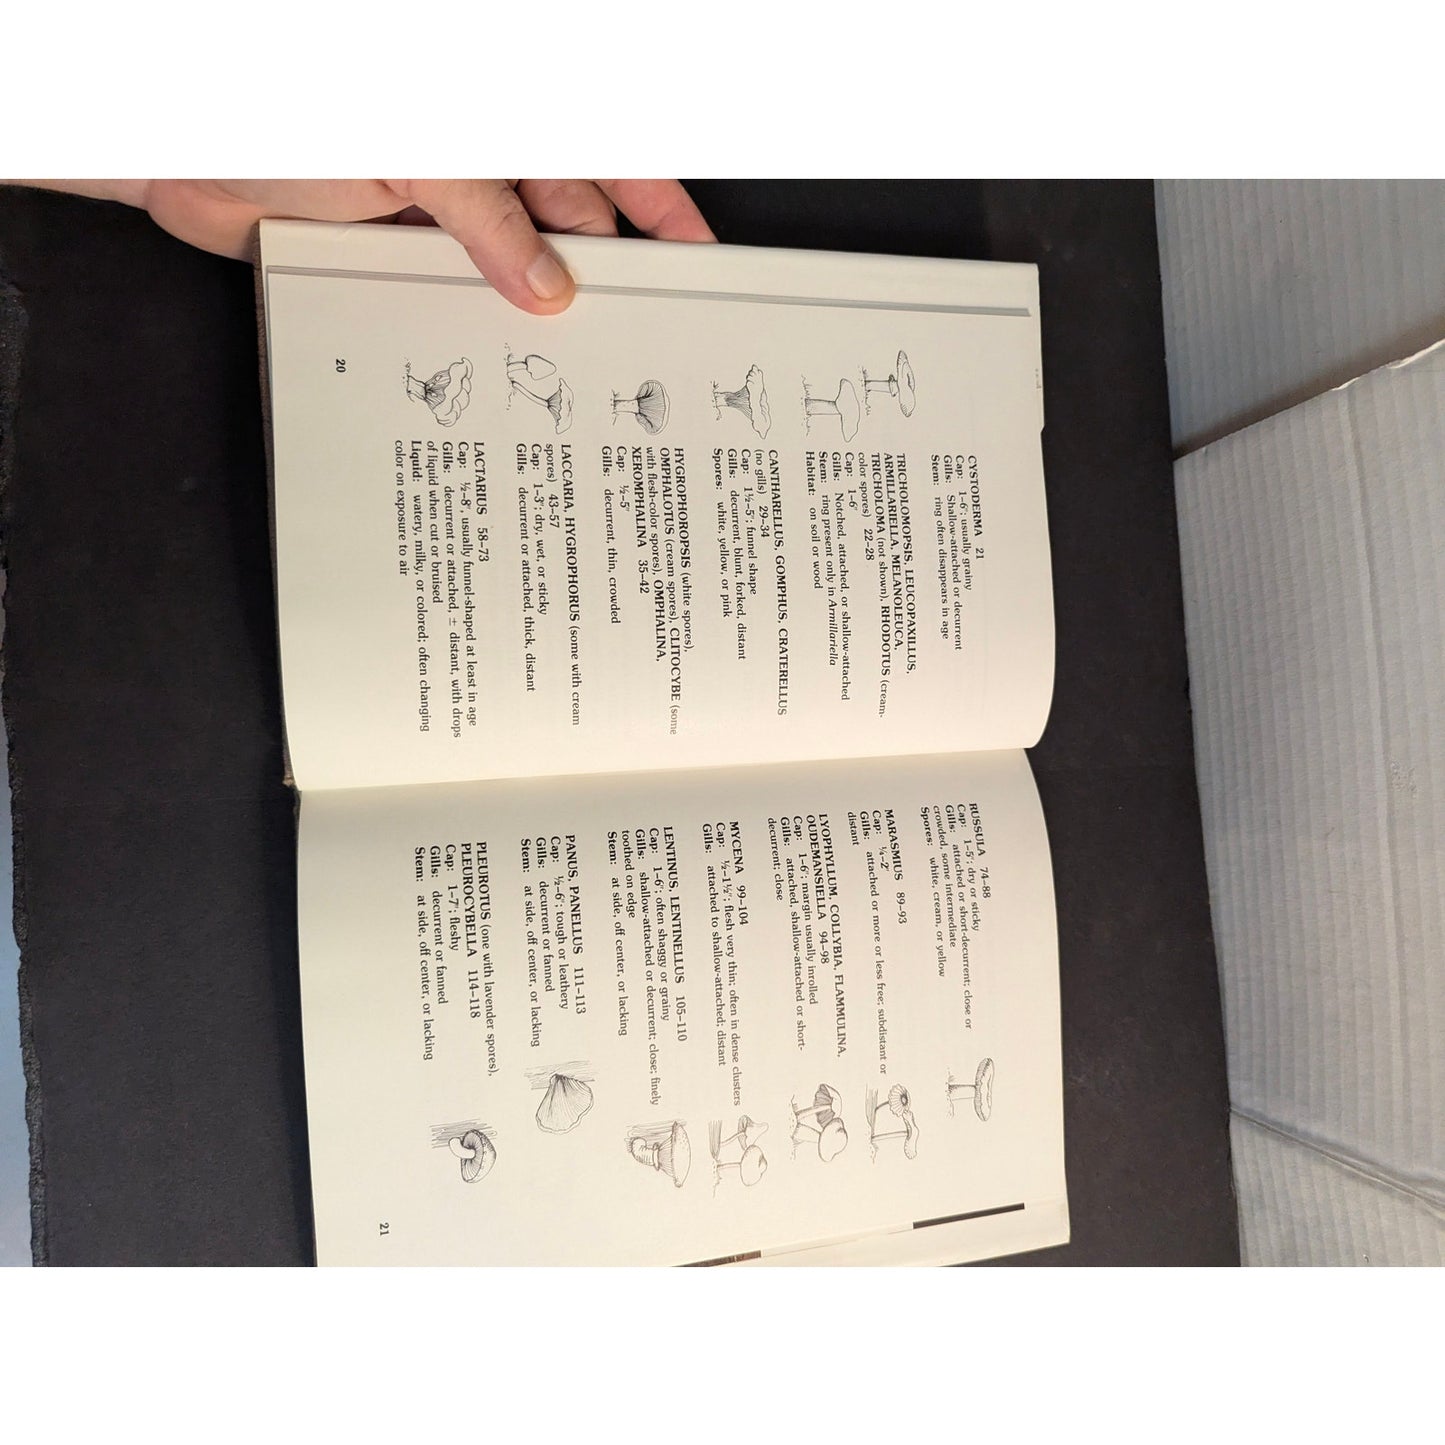 CYSTODERMA 21
Cap: 1–6″; usually grainy
Gills: Shallow-attached or decurrent
Stem: ring often disappears in age
TRICHOLOMOPSIS, LEUCOPAXILLUS,
ARMILLARIELLA, MELANOLEUCA,
TRICHOLOMA (not shown), RHODOTUS (cream-
color spores) 22–28
Cap: 1–6″
Gills: Notched, attached, or shallow-attached
Stem: ring present only in Armillariella
Habitat: on soil or wood
CANTHARELLUS, GOMPHUS, CRATERELLUS
(no gills) 29–34
Cap: 1½–5″; funnel shape
Gills: decurrent, blunt, forked, distant
Spores: white, yellow, or pink
HYGROPHOROPSIS (white spores),
OMPHALOTUS (cream spores), CLITOCYBE (some
with flesh-color spores), OMPHALINA,
XEROMPHALINA 35–42
Cap: ½–5″
Gills: decurrent, thin, crowded
LACCARIA, HYGROPHORUS (some with cream
spores) 43–57
Cap: 1–3″; dry, wet, or sticky
Gills: decurrent or attached, thick, distant
LACTARIUS 58–73
Cap: ½–8″, usually funnel-shaped at least in age
Gills: decurrent or attached, ± distant, with drops
of liquid when cut or bruised
Liquid: watery, milky, or colored; often changing
color on exposure to air
20
RUSSULA 74–88
Cap: 1–5″; dry or sticky
Gills: attached or short-decurrent; close or
crowded, some intermediate
Spores: white, cream, or yellow
MARASMIUS 89–93
Cap: ¼–2″
Gills: attached or more or less free; subdistant or
distant
LYOPHYLLUM, COLLYBIA, FLAMMULINA,
OUDEMANSIELLA 94–98
Cap: 1–6″; margin usually inrolled
Gills: attached, shallow-attached or short-
decurrent; close
MYCENA 99–104
Cap: ½–1½″; flesh very thin; often in dense clusters
Gills: attached to shallow-attached; distant
LENTINUS, LENTINELLUS 105–110
Cap: 1–6″; often shaggy or grainy
Gills: shallow-attached or decurrent; close; finely
toothed on edge
Stem: at side, off center, or lacking
PANUS, PANELLUS 111–113
Cap: ½–6″; tough or leathery
Gills: decurrent or fanned
Stem: at side, off center, or lacking
PLEUROTUS (one with lavender spores),
PLEUROCYBELLA 114–118
Cap: 1–7″; fleshy
Gills: decurrent or fanned
Stem: at side, off center, or lacking
21